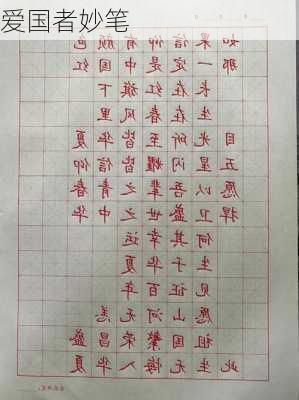 爱国者妙笔
如果信仰有颜色
那一定是中国红
长在红旗下
生在春风里
目光所至皆华夏
五星闪耀皆信仰
愿以吾辈之青春
捍卫盛世之中华
何其幸运
生于华夏
见证百年
愿山河无恙
祖国繁荣昌盛
此生无悔入华夏